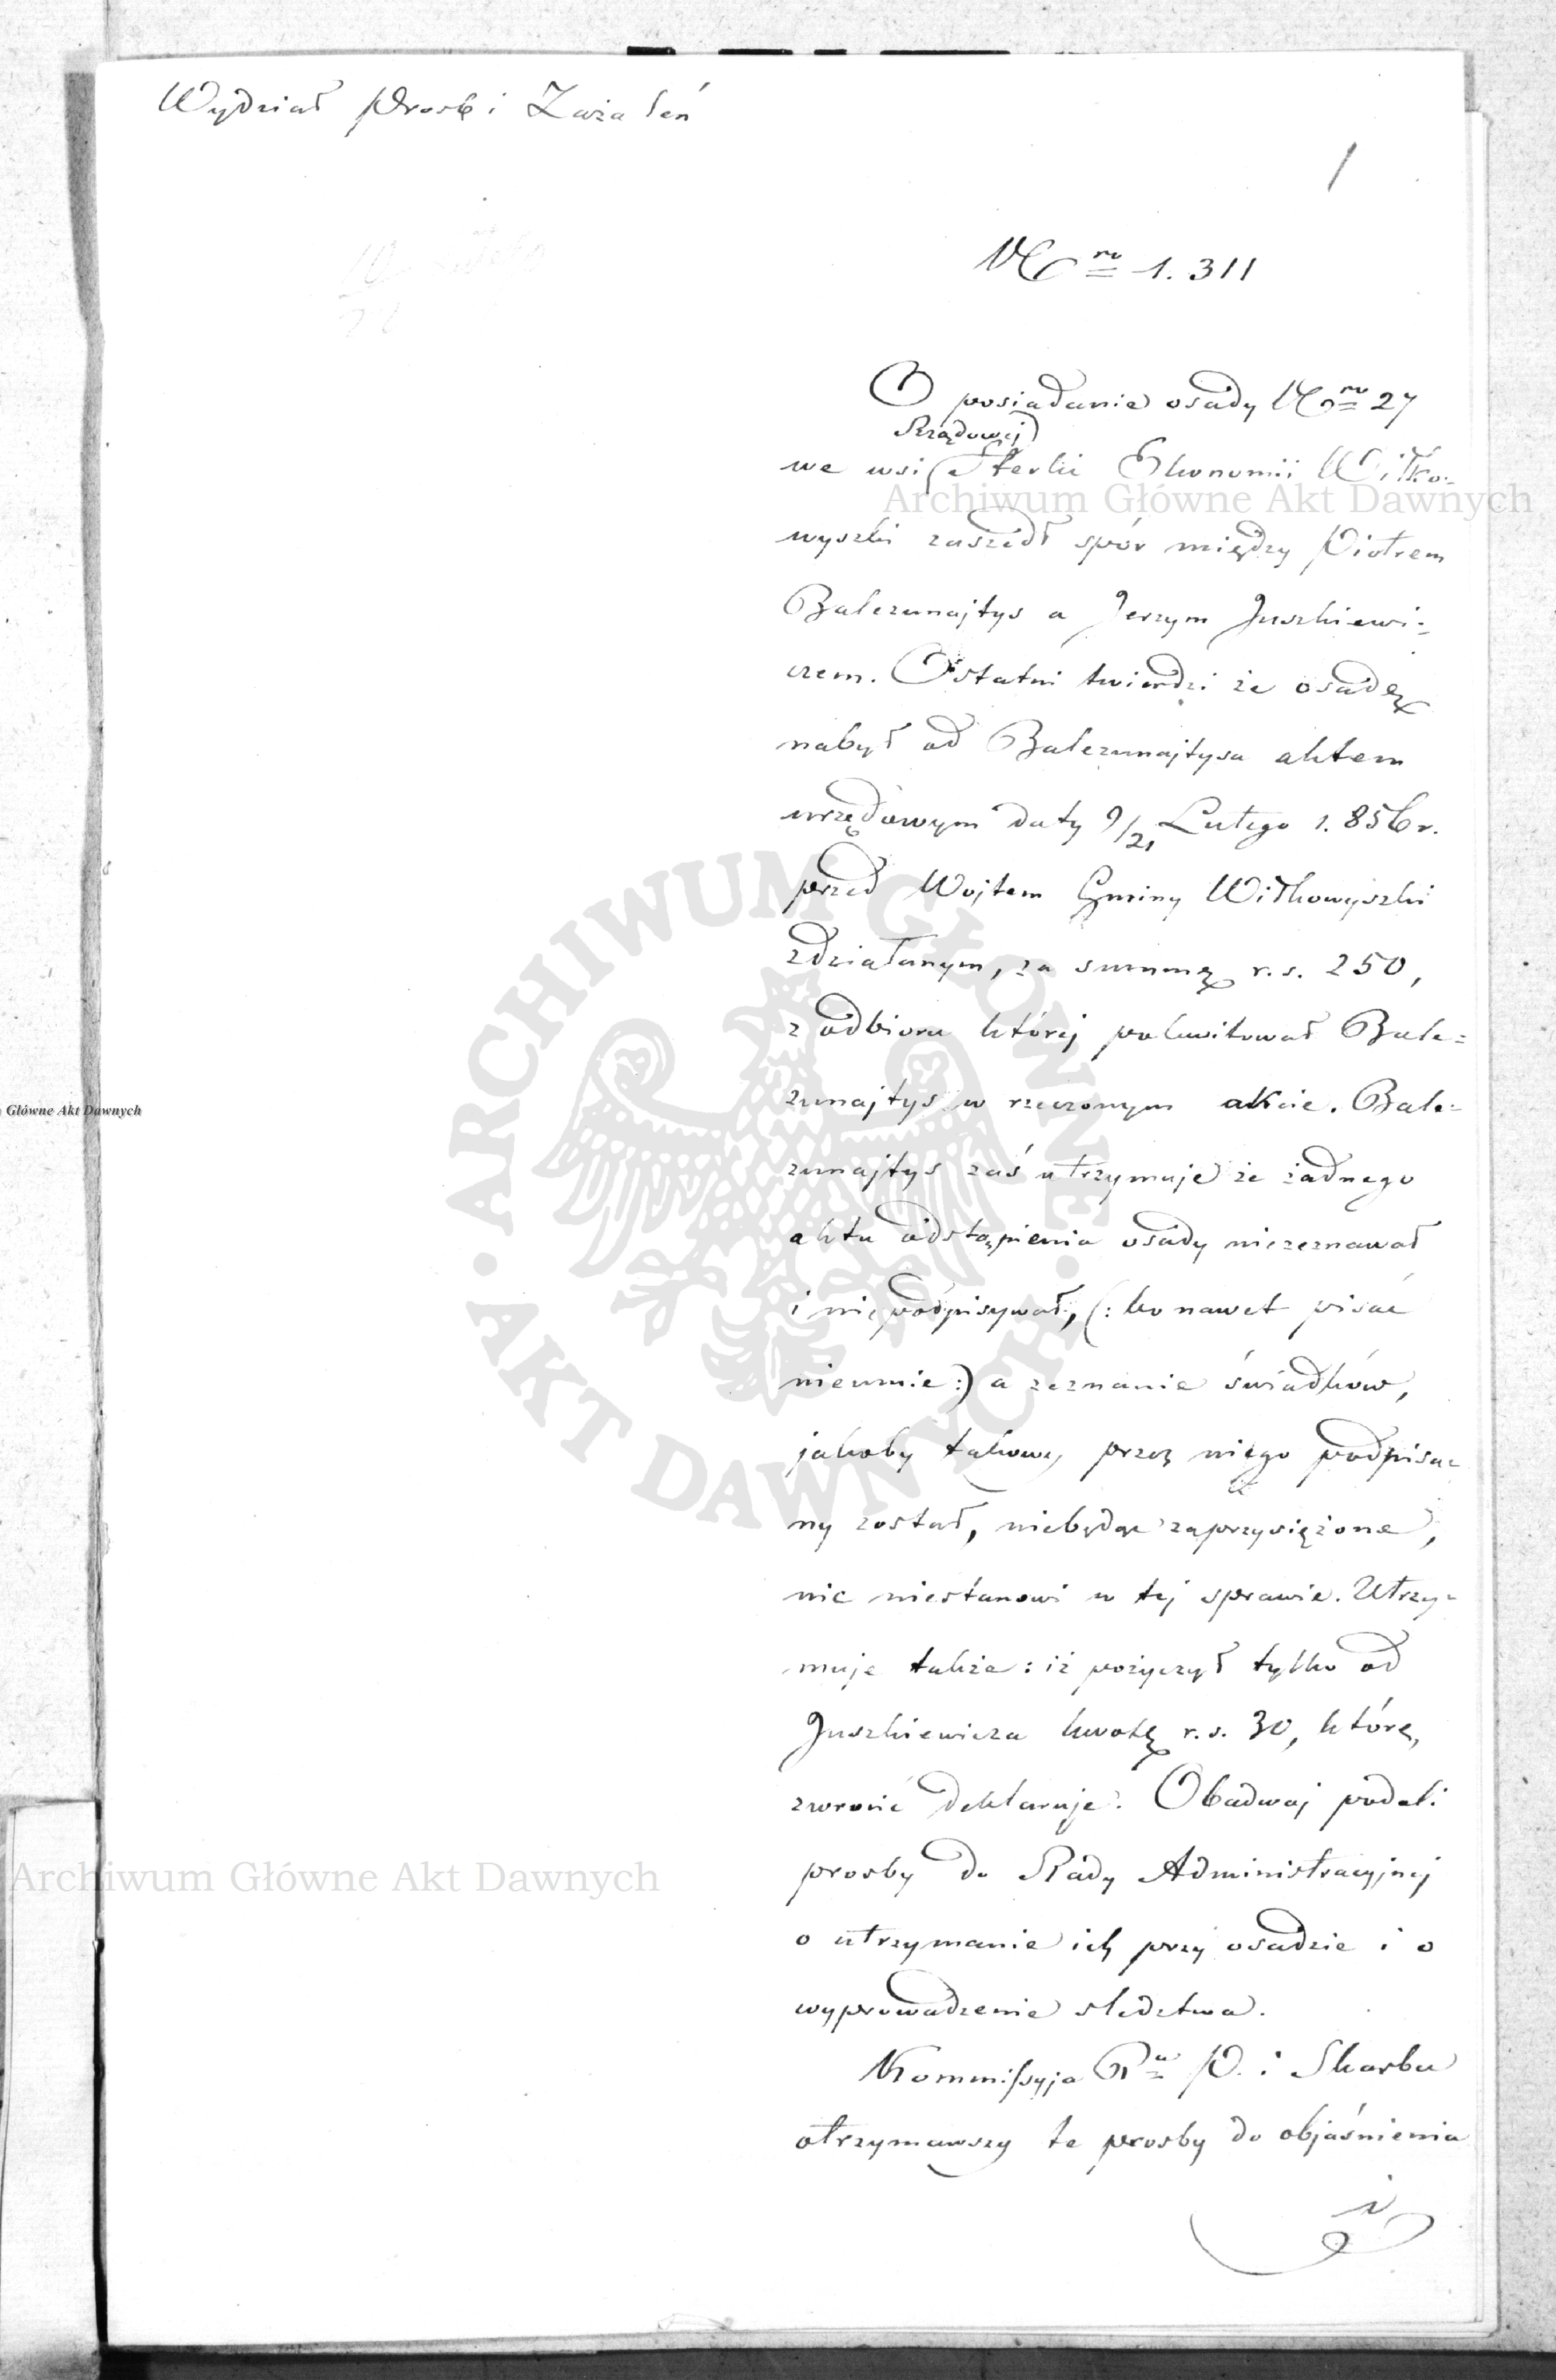 Wydział Prosb i Zażaleń
1
Nro 1.311
O posiadanie osady Nro 27
Rządowej
we wsi Sterki Ekonomii Wiłko-
wyszki zaszedł spór między Piotrem
Balezunajtys a Jerzym Juszkiewi-
czem. Ostatni twierdzi że osadę
nabył od Balezunajtysa aktem
urzędowym daty 9/21 Lutego 1.856 r.
przed Wojtem Gminy Wiłkowyszki
zdziałanym, za summę r.s. 250,
z odbioru której pokwitował Bale=
zunajtys w rzeczonym akcie. Bale=
zunajtys zaś utrzymuje że żadnego
aktu odstąpienia osady niezeznawał
i niepodpisywał, (: bo nawet pisać
nieumie :) a zeznanie świadków,
jakoby takowy przez niego podpisa=
ny został, niebędąc zaprzysiężone,
nic niestanowi w tej sprawie. Utrzy=
muje także: iż pożyczył tylko od
Juszkiewicza kwotę r.s. 30, którę
zwrócić deklaruje. Obadwaj podali
prosby do Rady Administracyjnej
o utrzymanie ich przy osadzie i o
wyprowadzenie sledztwa.
Kommissyja Ra P. i Skarbu
otrzymawszy te prosby do objaśnienia
Archiwum Główne Akt Dawnych
Główne Akt Dawnych
• ARCHIWUM GŁÓWNE • AKT DAWNYCH
Archiwum Główne Akt Dawnych